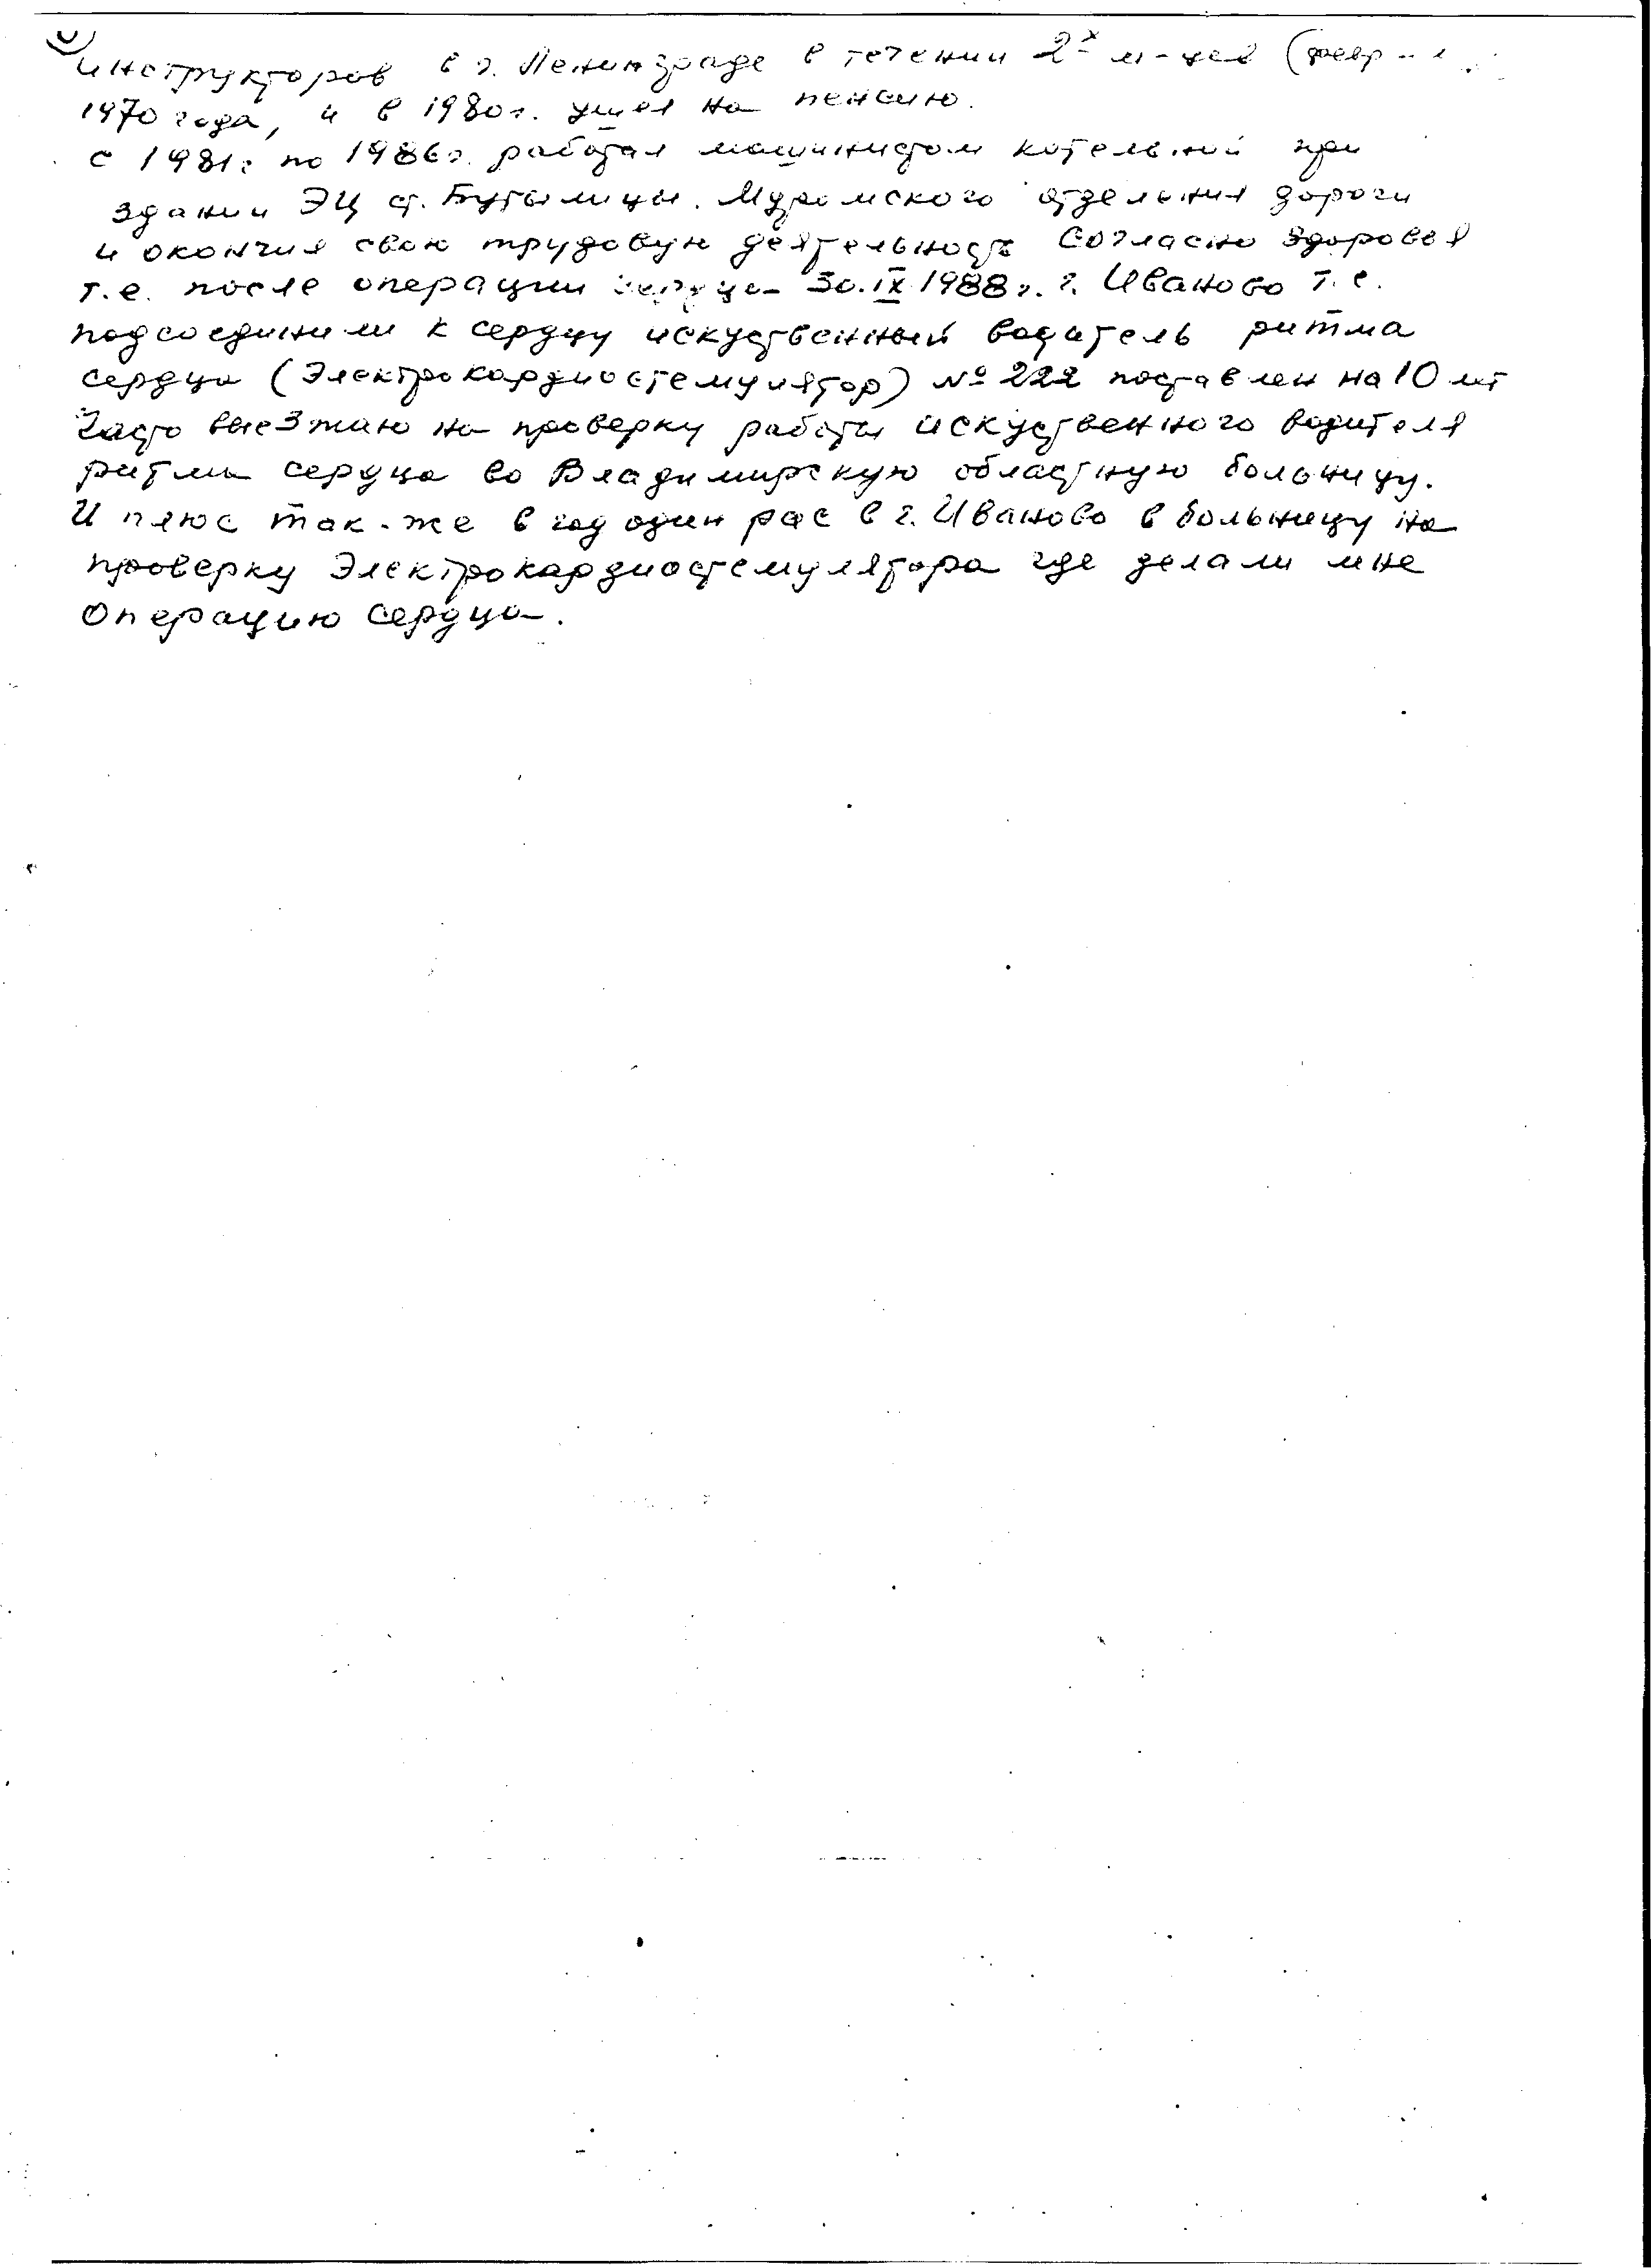 инструкторов в г. Ленинграде в течении 2х м-цев
1970 года, и в 1980г. ушел на пенсию.
с 1981г по 1986г. работал машинистом котельной при
здании ЭЦ ст. Бутылицы. Муромского отделения дороги
и окончил свою трудовую деятельность Согласно здоровья
т.е. после операции сердца 30.IX 1988г. г. Иваново т.е.
подсоединили к сердцу искуственный водитель ритма
сердца (Электрокардиостемулятор) № 222 поставлен на 10 лет
Часто выезжаю на проверку работы искуственного водителя
ритма сердца во Владимирскую областную больницу.
И плюс так-же в год один рас в г. Иваново в больницу на
проверку Электрокардиостемулятора где делали мне
Операцию сердца.